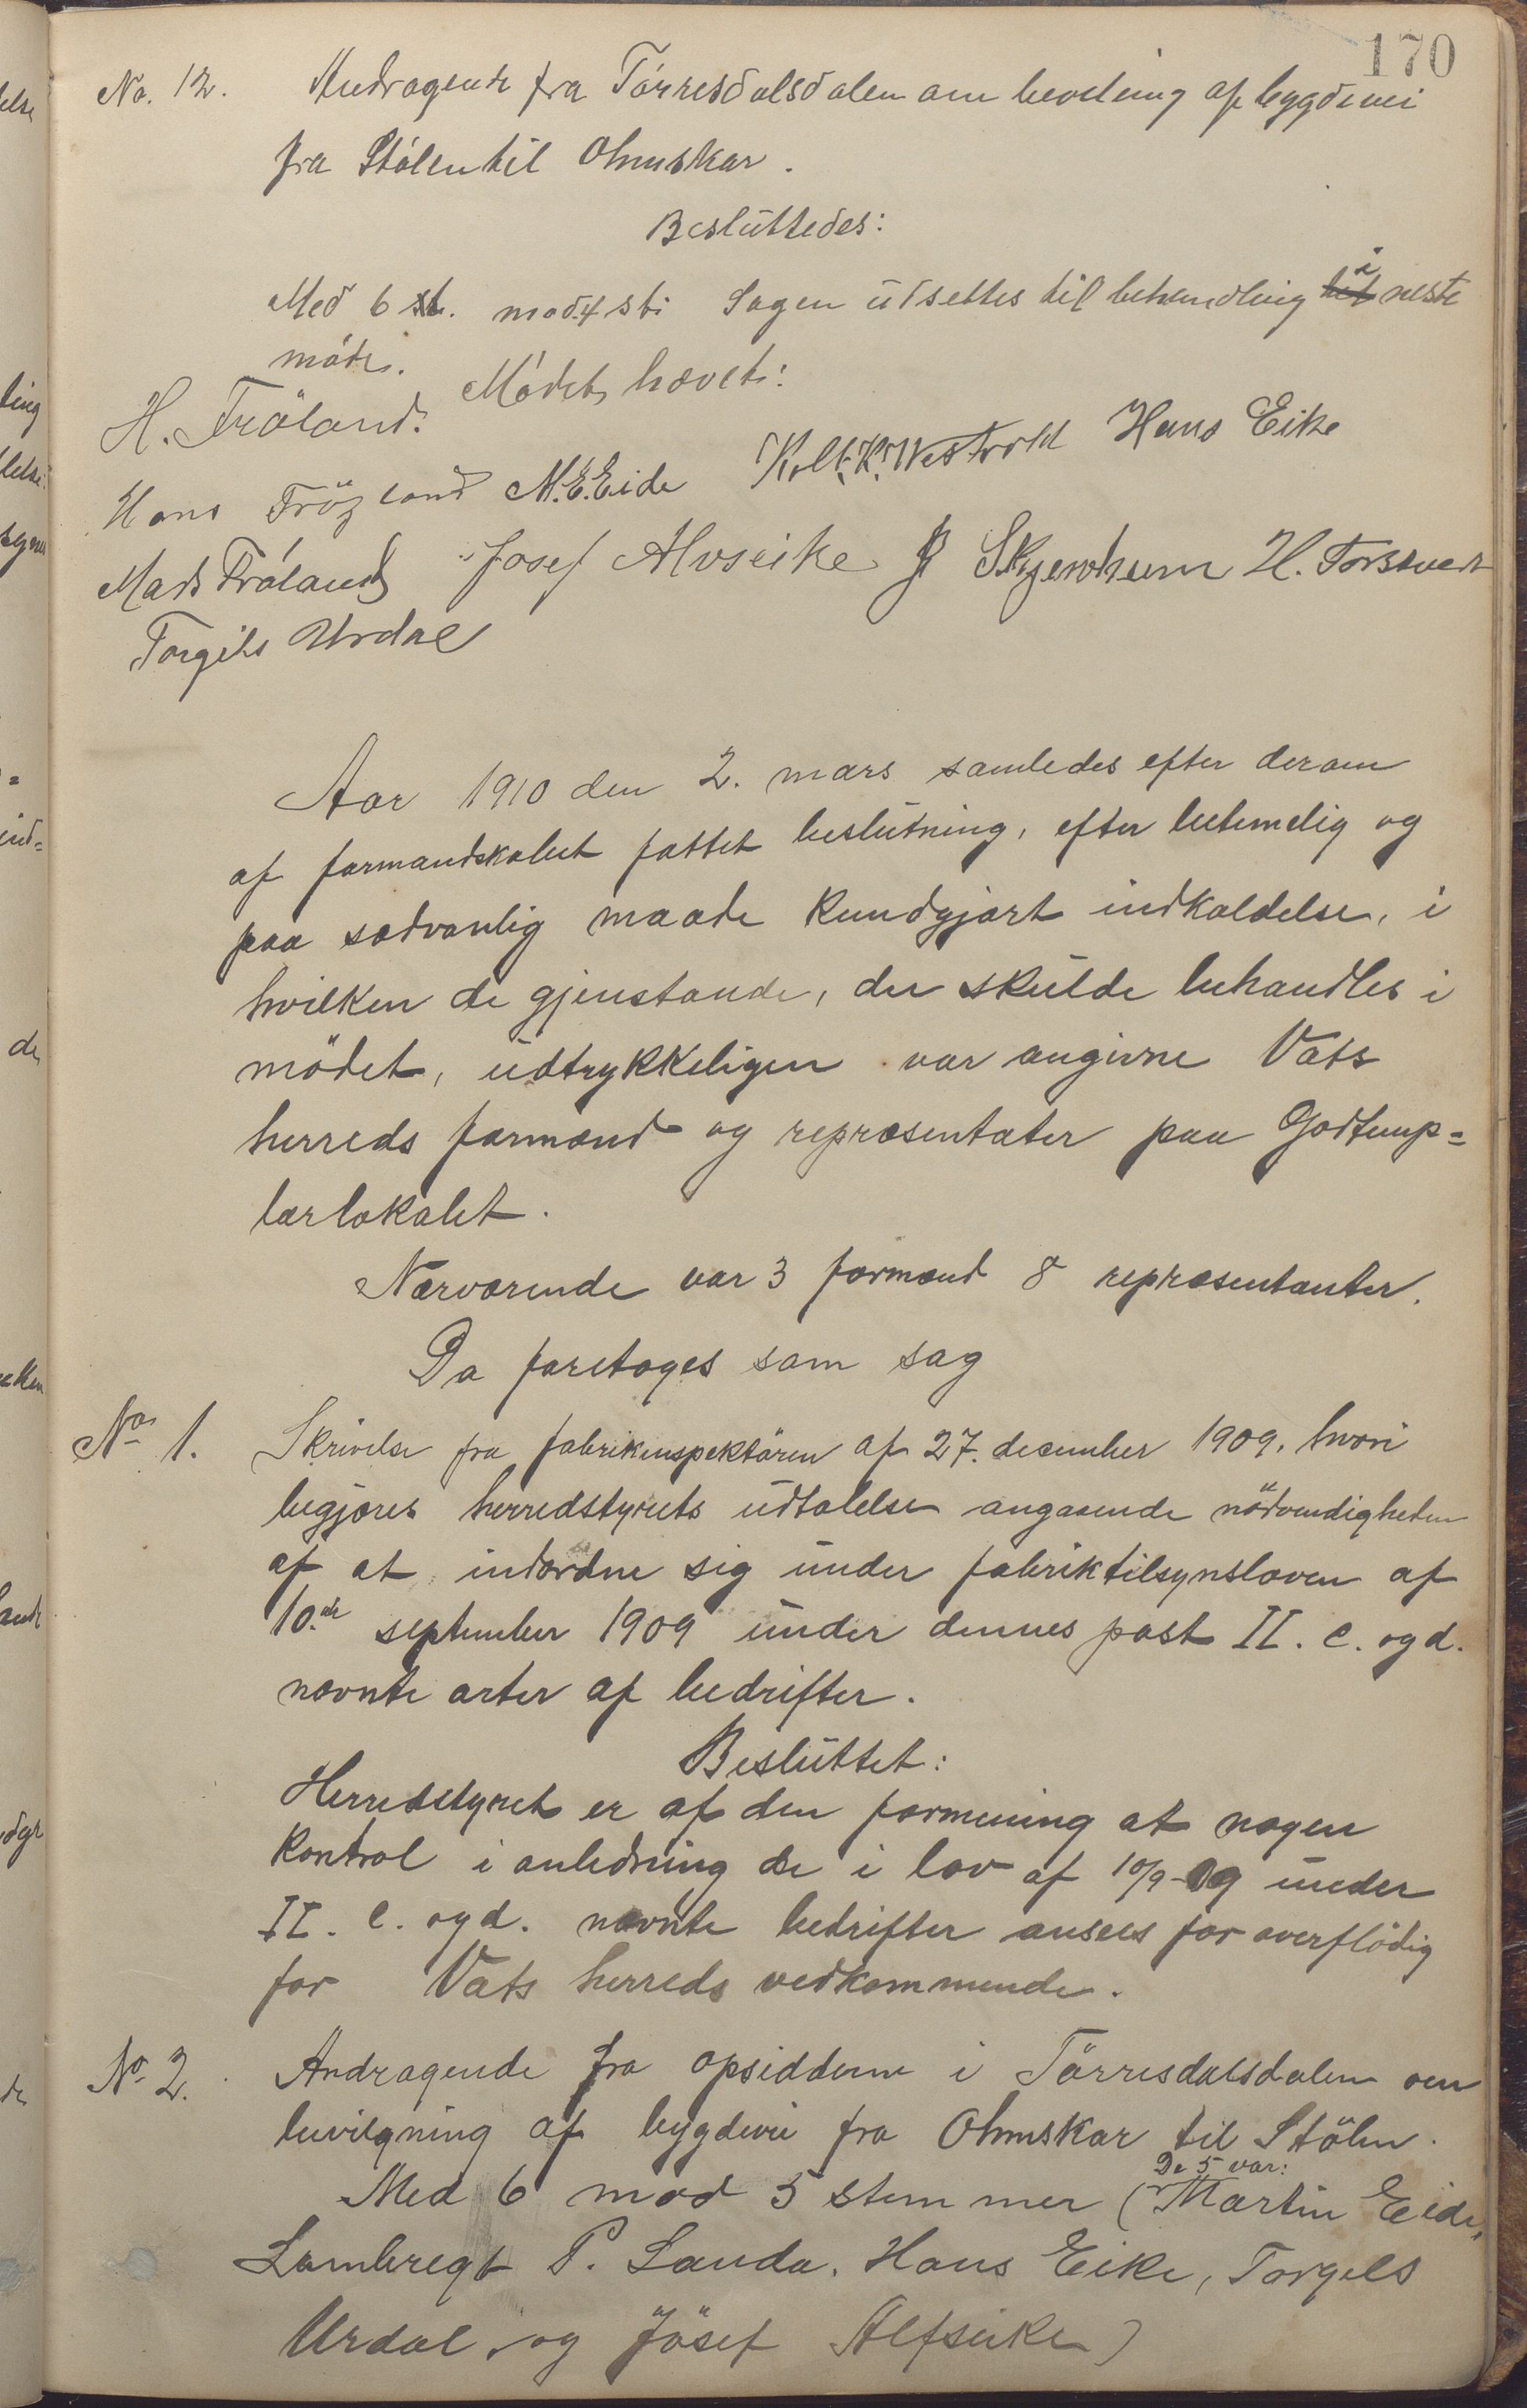 170
No. 12. Andragende fra Törresdalsdalen om bevilning af bygdevei
fra Stölen til Ohmskar.
Besluttedes:
Med 6 st. mod 4 st: Sagen udsettes til behandling til i neste
möde. Mödet hævet:
H. Fröland.
Hans Fröyland M. E. Eide K. Westvold Hans Eike
Mads Fröland Josef Alvseike Skjenheim H. Forssvedt
Torgils Urdal
Aar 1910 den 2. mars samledes efter derom
af formandskabet fattet beslutning, efter betimelig og
paa sædvanlig maade kundgjort indkaldelse, i
hvilken de gjenstande, der skulde behandles i
mödet, udtrykkeligen var angivne Vats
herreds formænd og repræsentater paa Godtemp=
larlokalet.
Nærværende var 3 formænd 8 repræsentanter.
Da foretoges som sag
No 1. Skrivelse fra fabrikinspektören af 27. december 1909, hvori
begjæres herredstyrets udtalelse angaaende nödvendigheten
af at indordne sig under fabriktilsynsloven af
10.de september 1909 under dennes post II. c. og d.
nævnte arter af bedrifter.
Besluttet:
Herredstyret er af den formening at nogen
kontrol i anledning de i lov af 10/9-09 under
II. c. og d. nævnte bedrifter ansees for overflödig
for Vats herreds vedkommende.
No 2. Andragende fra opsidderne i Törresdalsdalen om
bevilgning af bygdevei fra Ohmskar til Stölen.
De 5 var:
Med 6 mod 5 stemmer (Martin Eide,
Lambregt P. Landa, Hans Eike, Torgels
Urdal og Josef Alfseike)